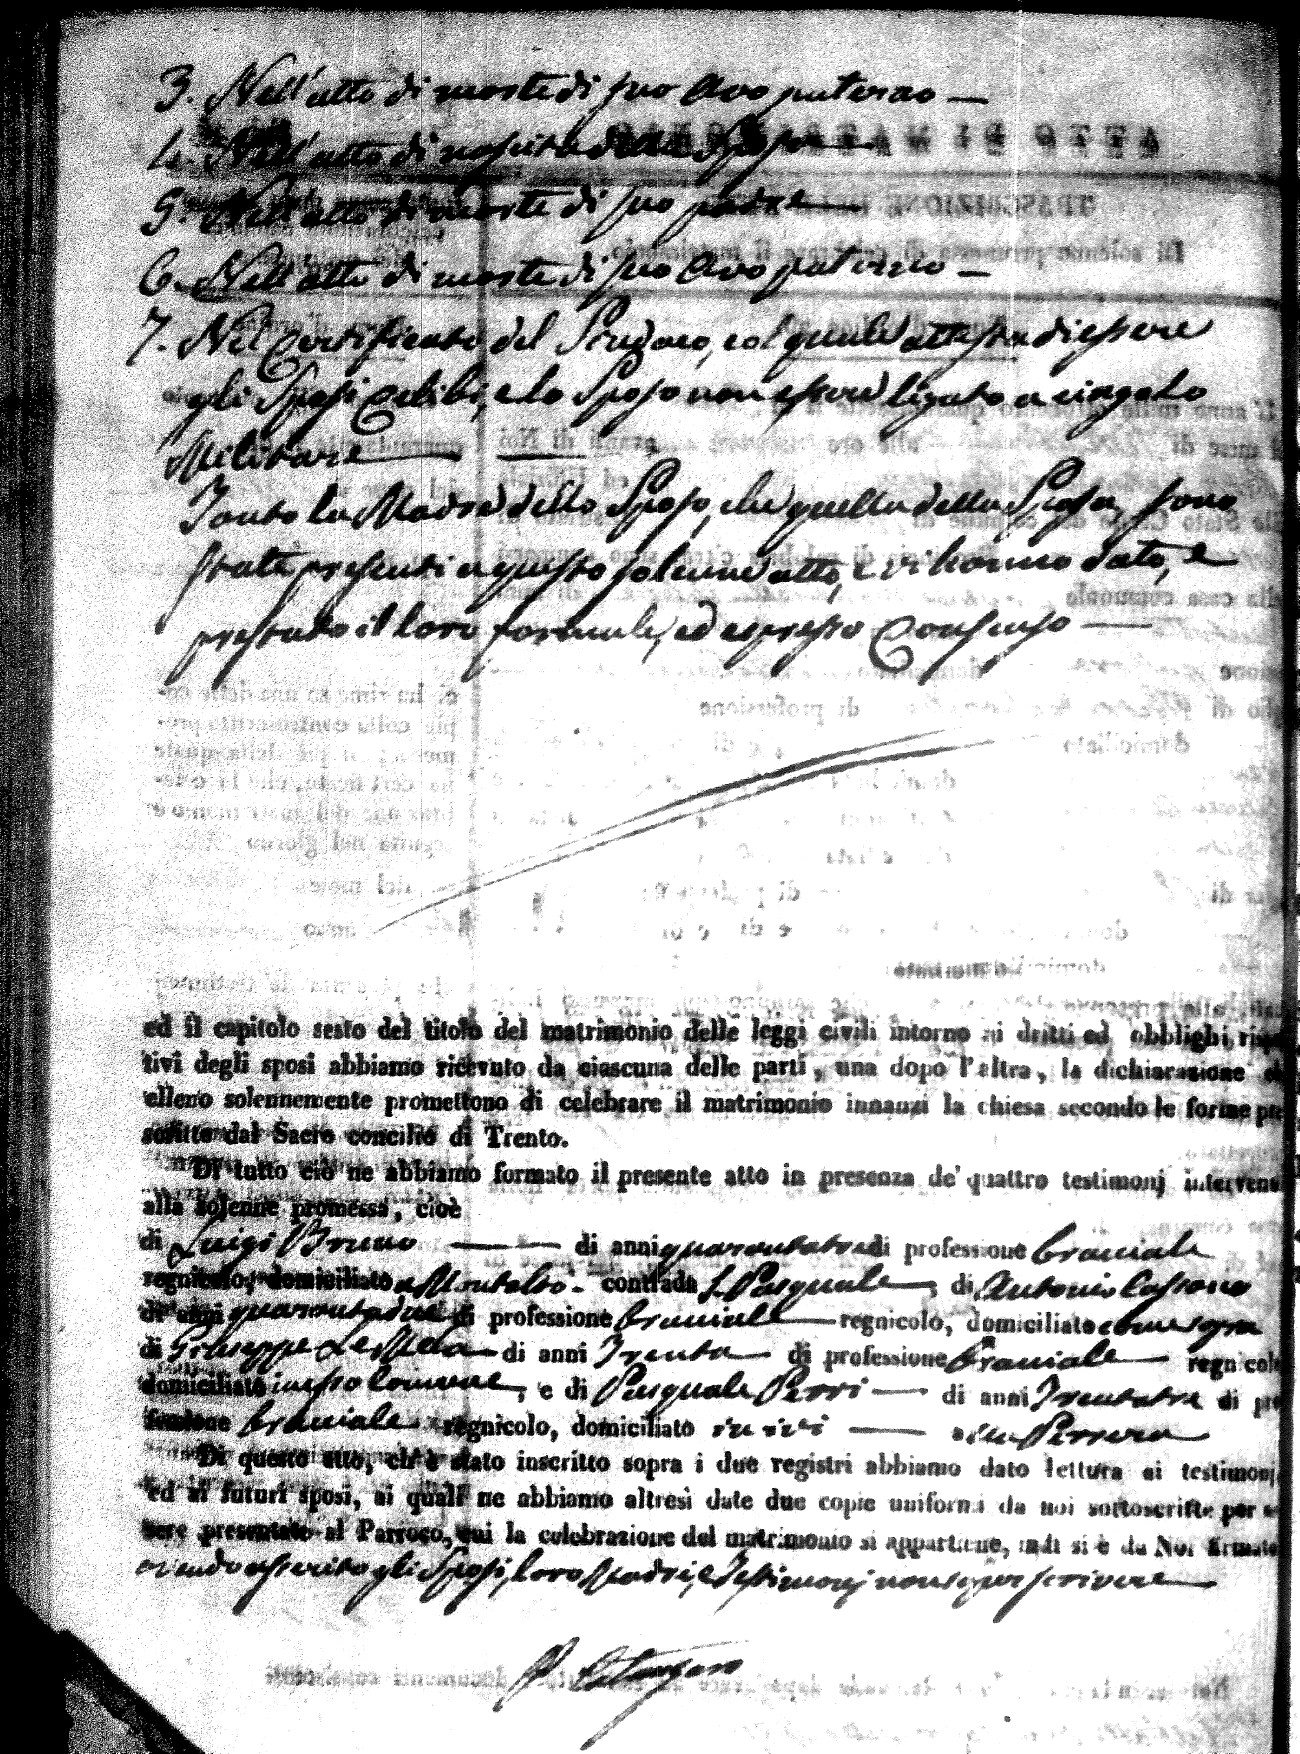 3. Nell'atto di morte di suo Avo paterno —
4. Nell'atto di nascita della Sposa —
5. Nell'atto di morte di suo padre —
6. Nell'atto di morte di suo Avo paterno —
7. Nel Certificato del Sindaco, col quale attesta di essere
gli Sposi Celibi, e lo Sposo non essere ligato a cingolo
Militare —
Tanto la Madre dello Sposo, che quella della Sposa, sono
state presenti a questo solenne atto, e vi hanno dato, e
prestato il loro formale, ed espresso Consenso —
ed il capitolo sesto del titolo del matrimonio delle leggi civili intorno ai dritti ed obblighi rispe
tivi degli sposi abbiamo ricevuto da ciascuna delle parti, una dopo l'altra, la dichiarazione
elleno solennemente promettono di celebrare il matrimonio innanzi la chiesa secondo le forme pre
scritte dal Sacro concilio di Trento.
Di tutto ciò ne abbiamo formato il presente atto in presenza de' quattro testimonj intervenu
alla solenne promessa, cioè
di Luigi Bruno — di anni quarantatre di professione braciale
regnicolo, domiciliato a Montalto - contrada S. Pasquale —, di Antonio Cassano
di anni quarantadue di professione braciale — regnicolo, domiciliato come sopra
di Giuseppe — di anni Trenta — di professione Braciale — regnicolo
domiciliato in esso Comune, e di Pasquale Perri — di anni Trentatre di pro
fessione braciale regnicolo, domiciliato ivi —
Di questo atto, ch'è stato inscritto sopra i due registri abbiamo dato lettura ai testimonj
ed ai futuri sposi, ai quali ne abbiamo altresì date due copie uniformi da noi sottoscritte per es
sere presentate al Parroco, cui la celebrazione del matrimonio si appartiene, indi si è da Noi firmato
avendo asserito gli Sposi, loro Madri, e Testimonj non saper scrivere —